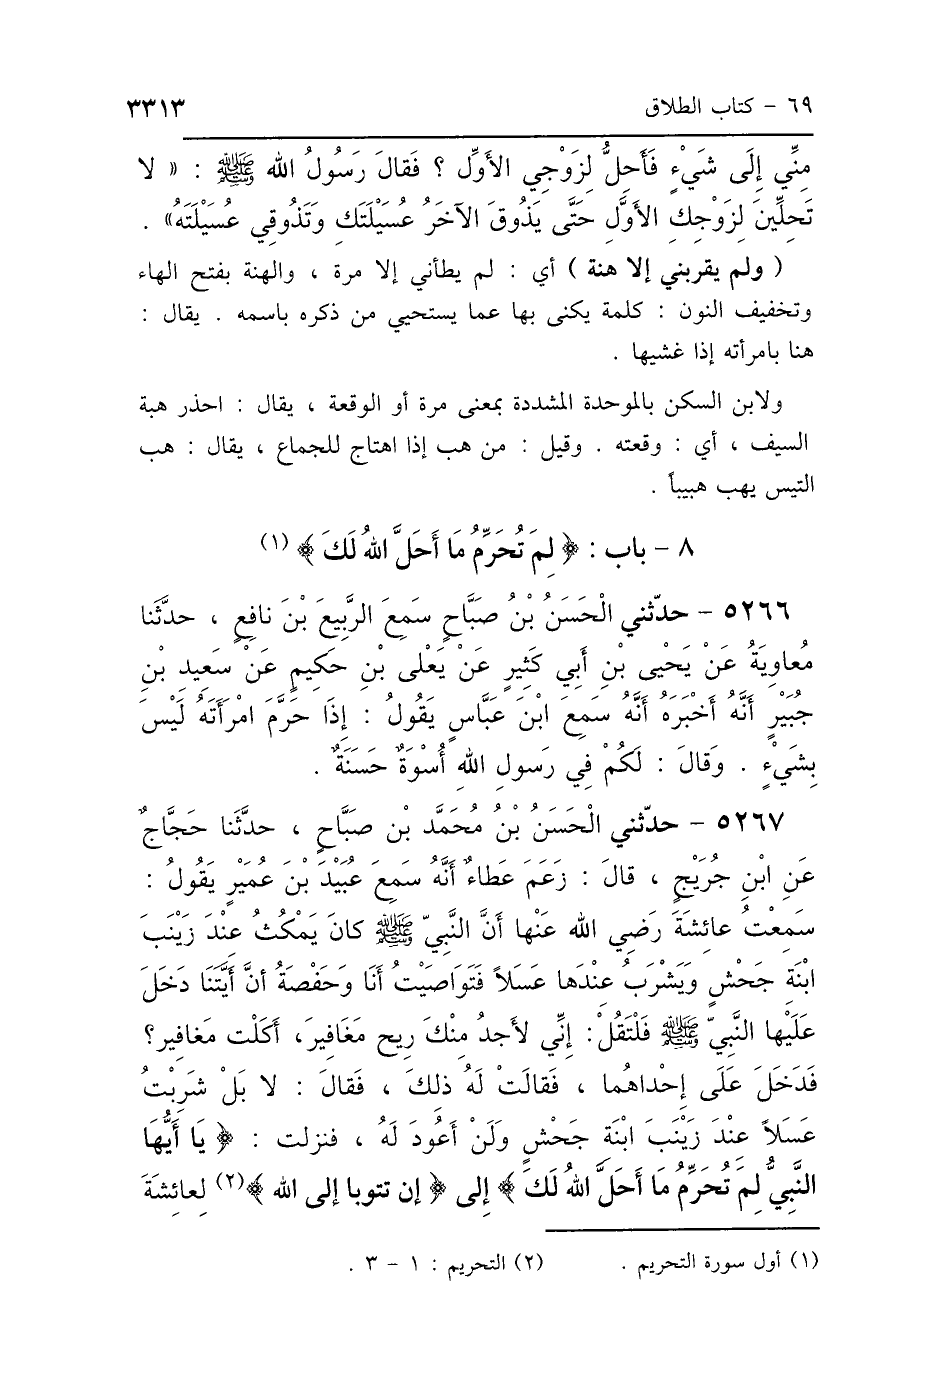 ٦٩ - كتاب الطلاق ٣٣١٣
مِنِّي إِلَى شَيْءٍ فَأَحِلُّ لِزَوْجِي الأَوَّلِ ؟ فَقالَ رَسُولُ الله ﷺ : « لا
تَحِلِّينَ لِزَوْجِكِ الأَوَّلِ حَتَّى يَذُوقَ الآخَرُ عُسَيْلَتَكِ وَتَذُوقِي عُسَيْلَتَهُ» .
( ولم يقربني إلا هنة ) أي : لم يطأني إلا مرة ، والهنة بفتح الهاء
وتخفيف النون : كلمة يكنى بها عما يستحيي من ذكره باسمه . يقال :
هنا بامرأته إذا غشيها .
ولابن السكن بالموحدة المشددة بمعنى مرة أو الوقعة ، يقال : احذر هبة
السيف ، أي : وقعته . وقيل : من هب إذا اهتاج للجماع ، يقال : هب
التيس يهب هبيباً .
٨ - باب : ﴿ لِمَ تُحَرِّمُ مَا أَحَلَّ اللهُ لَكَ ﴾ (١)
٥٢٦٦ - حدّثني الْحَسَنُ بْنُ صَبَّاحٍ سَمِعَ الرَّبِيعَ بْنَ نافِعٍ ، حدَّثَنا
مُعاوِيَةُ عَنْ يَحْيى بْنِ أَبِي كَثِيرٍ عَنْ يَعْلى بْنِ حَكِيمٍ عَنْ سَعِيدِ بْنِ
جُبَيْرٍ أَنَّهُ أَخْبَرَهُ أَنَّهُ سَمِعَ ابْنَ عَبَّاسٍ يَقُولُ : إِذَا حَرَّمَ امْرأَتَهُ لَيْسَ
بِشَيْءٍ . وَقالَ : لَكُمْ فِي رَسولِ اللهِ أُسْوَةٌ حَسَنَةٌ .
٥٢٦٧ - حدّثني الْحَسَنُ بْنُ مُحَمَّدِ بْنِ صَبَّاحٍ ، حدَّثَنا حَجَّاجٌ
عَنِ ابْنِ جُرَيْجٍ ، قالَ : زَعَمَ عَطاءٌ أَنَّهُ سَمِعَ عُبَيْدَ بْنَ عُمَيْرٍ يَقُولُ :
سَمِعْتُ عائِشَةَ رَضِي الله عَنْها أَنَّ النَّبِيّ ﷺ كانَ يَمْكُثُ عِنْدَ زَيْنَبَ
ابْنَةِ جَحْشٍ وَيَشْرَبُ عِنْدَها عَسَلاً فَتَواصَيْتُ أَنَا وَحَفْصَةُ أنَّ أَيَّتَنَا دَخَلَ
عَلَيْها النَّبِيّ ﷺ فَلْتَقُلْ: إِنِّي لأَجِدُ مِنْكَ رِيح مَغَافِيرَ، أَكَلْت مَغافِير؟
فَدَخَلَ عَلَى إِحْداهُما ، فَقالَتْ لَهُ ذلِكَ ، فَقالَ : لا بَلْ شَرِبْتُ
عَسَلاً عِنْدَ زَيْنَبَ ابْنَةِ جَحْشٍ وَلَنْ أَعُودَ لَهُ ، فنزلت : ﴿ يَا أَيُّها
النَّبِيُّ لِمَ تُحَرِّمُ مَا أَحَلَّ اللهُ لَكَ ﴾ إلى ﴿ إن تتوبا إلى الله ﴾(٢) لِعائِشَةَ
(١) أول سورة التحريم . (٢) التحريم : ١ - ٣ .